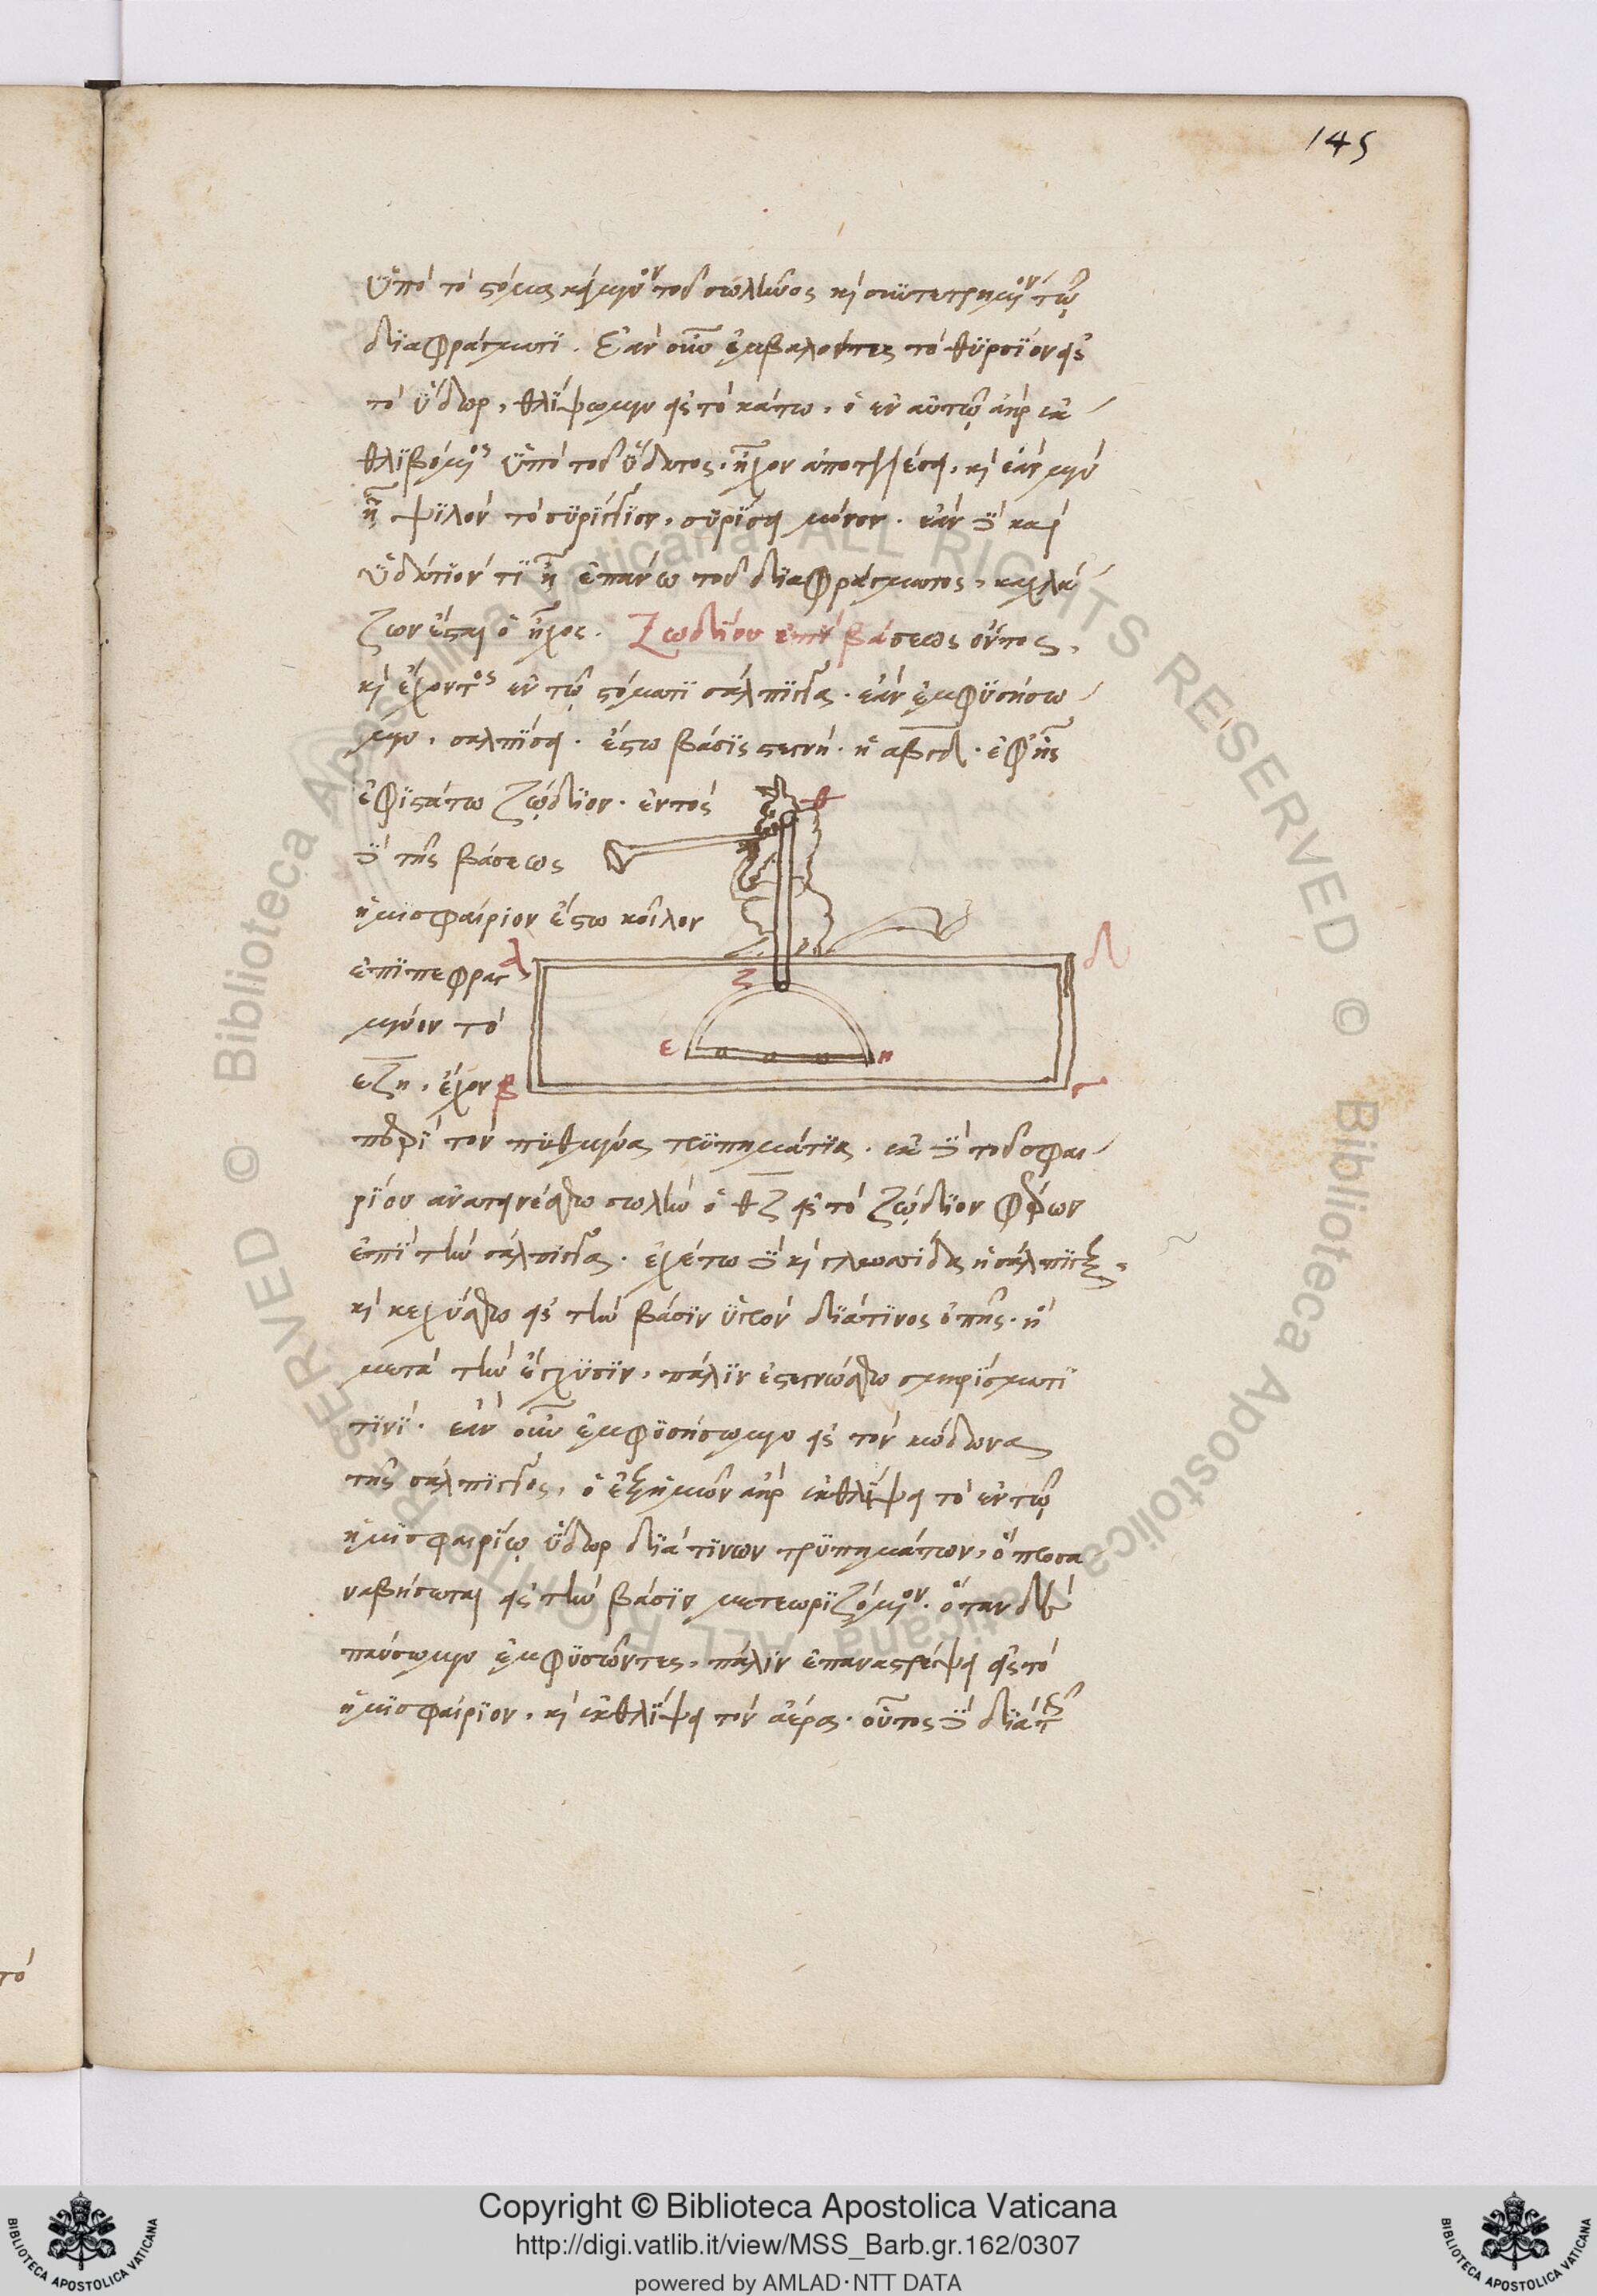 145
ὑπὸ τὸ στόμα κείμενον τοῦ σωλῆνος καὶ συντετρημένον τῷ
διαφράγματι. Ἐὰν οὖν ἐμβαλόντες τὸ θυρσίον εἰς
τὸ ὕδωρ, θλίψωμεν εἰς τὸ κάτω, ὁ ἐν αὐτῷ ἀὴρ ἐκ
θλιβόμενος ὑπὸ τοῦ ὕδατος, ἦχον ἀποτελέσει, καὶ ἐὰν μὲν
ᾖ ψιλὸν τὸ συρίγγιον, συρίσει μόνον. ἐὰν δὲ καὶ
ὑδάτιόν τι ᾖ ἐπάνω τοῦ διαφράγματος, καχλά
ζων ἔσται ὁ ἦχος. Ζωδίου ἐπὶ βάσεως ὄντος,
καὶ ἔχοντος ἐν τῷ στόματι σάλπιγγα. ἐὰν ἐμφυσήσω
μεν, σαλπίσει. ἔστω βάσις στεγνὴ. ἡ αβγδ. ἐφ' ἧς
ἐφιστάτω ζῴδιον. ἐντὸς θ
δὲ τῆς βάσεως
ἡμισφαίριον ἔστω κοῖλον
α δ
ἐπιπεφραγ ζ
μένον τὸ
ε η
εζη, ἔχον β γ
περὶ τὸν πυθμένα τρυπημάτια. ἐκ δὲ τοῦ σφαι
ρίου ἀνατεινέσθω σωλὴν ὁ θζ εἰς τὸ ζῴδιον φέρων
ἐπὶ τὴν σάλπιγγα. ἐχέτω δὲ καὶ γλωσσίδα ἡ σάλπιγξ,
καὶ κεχύσθω εἰς τὴν βάσιν ὑγρὸν διά τινος ὀπῆς. ἣ
μετὰ τὴν ἔγχυσιν, πάλιν ἐστεγνώσθω σμηρίσματί
τινι. ἐὰν οὖν ἐμφυσήσωμεν εἰς τὸν κώδωνα
τῆς σάλπιγγος, ὁ ἐξ ἡμῶν ἀὴρ ἐκθλίψει τὸ ἐν τῷ
ἡμισφαιρίῳ ὕδωρ διά τινων τρυπημάτων, ὅπως ἀ
ναβήσεται εἰς τὴν βάσιν μετεωριζόμενον. ὅταν δὲ
παύσωμεν ἐμφυσῶντες, πάλιν ἐπαναστρέψει εἰς τὸ
ἡμισφαίριον, καὶ ἐκθλίψει τὸν ἀέρα. οὗτος δὲ διὰ τῆς
τὸ
Copyright © Biblioteca Apostolica Vaticana
http://digi.vatlib.it/view/MSS_Barb.gr.162/0307
powered by AMLAD·NTT DATA
BIBLIOTECA APOSTOLICA VATICANA
BIBLIOTECA APOSTOLICA VATICANA
© Biblioteca Apostolica Vaticana ALL RIGHTS RESERVED © Biblioteca Apostolica Vaticana ALL RIGHTS RESERVED